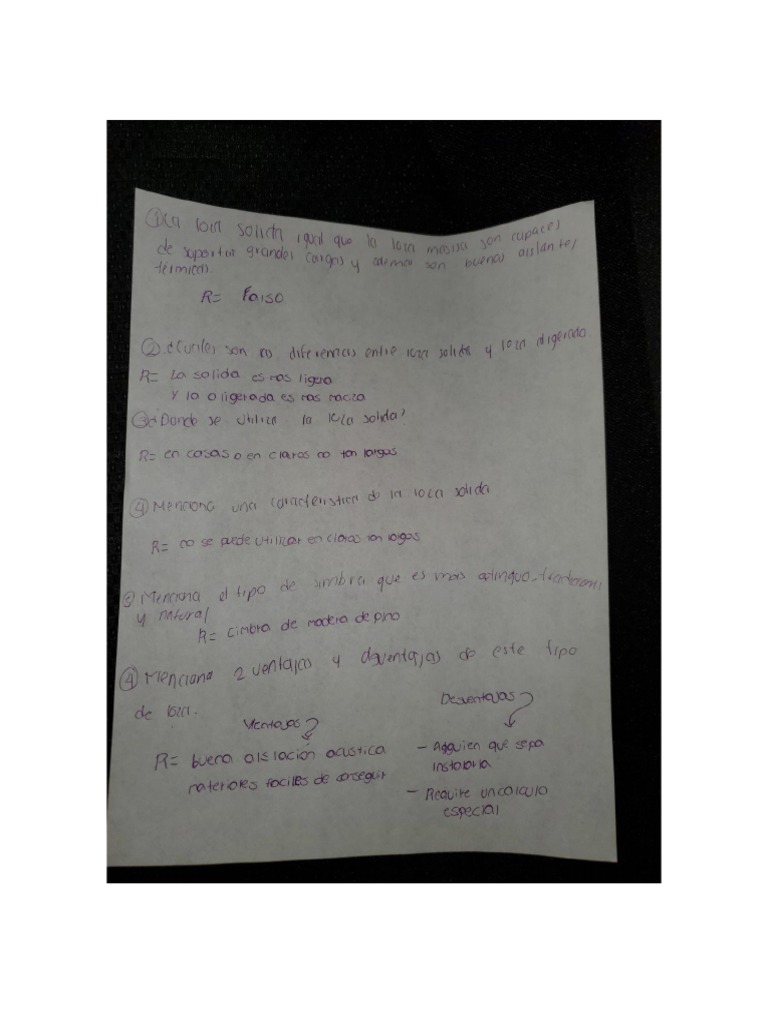 ① La loza solida igual que la loza maciza son capaces
de soportar grandes cargas y ademas son buenos aislantes
térmicos.
R= Falso
② ¿Cuales son las diferencias entre loza solida y loza aligerada.
R= La solida es mas ligera
y la aligerada es mas maciza
③ ¿Donde se utiliza la loza solida?
R= en casas o en claros no tan largos
④ Menciona una caracteristica de la loza solida
R= no se puede utilizar en claros tan largos
⑤ Menciona el tipo de simbra que es más antiguo, tradicional
y natural
R= cimbra de madera de pino
④ Menciona 2 ventajas y desventajas de este tipo
de loza.
Ventajas
R= buena aislación acustica
materiales faciles de conseguir
Desventajas
- Alguien que sepa
instalarla
- Require un calculo
especial